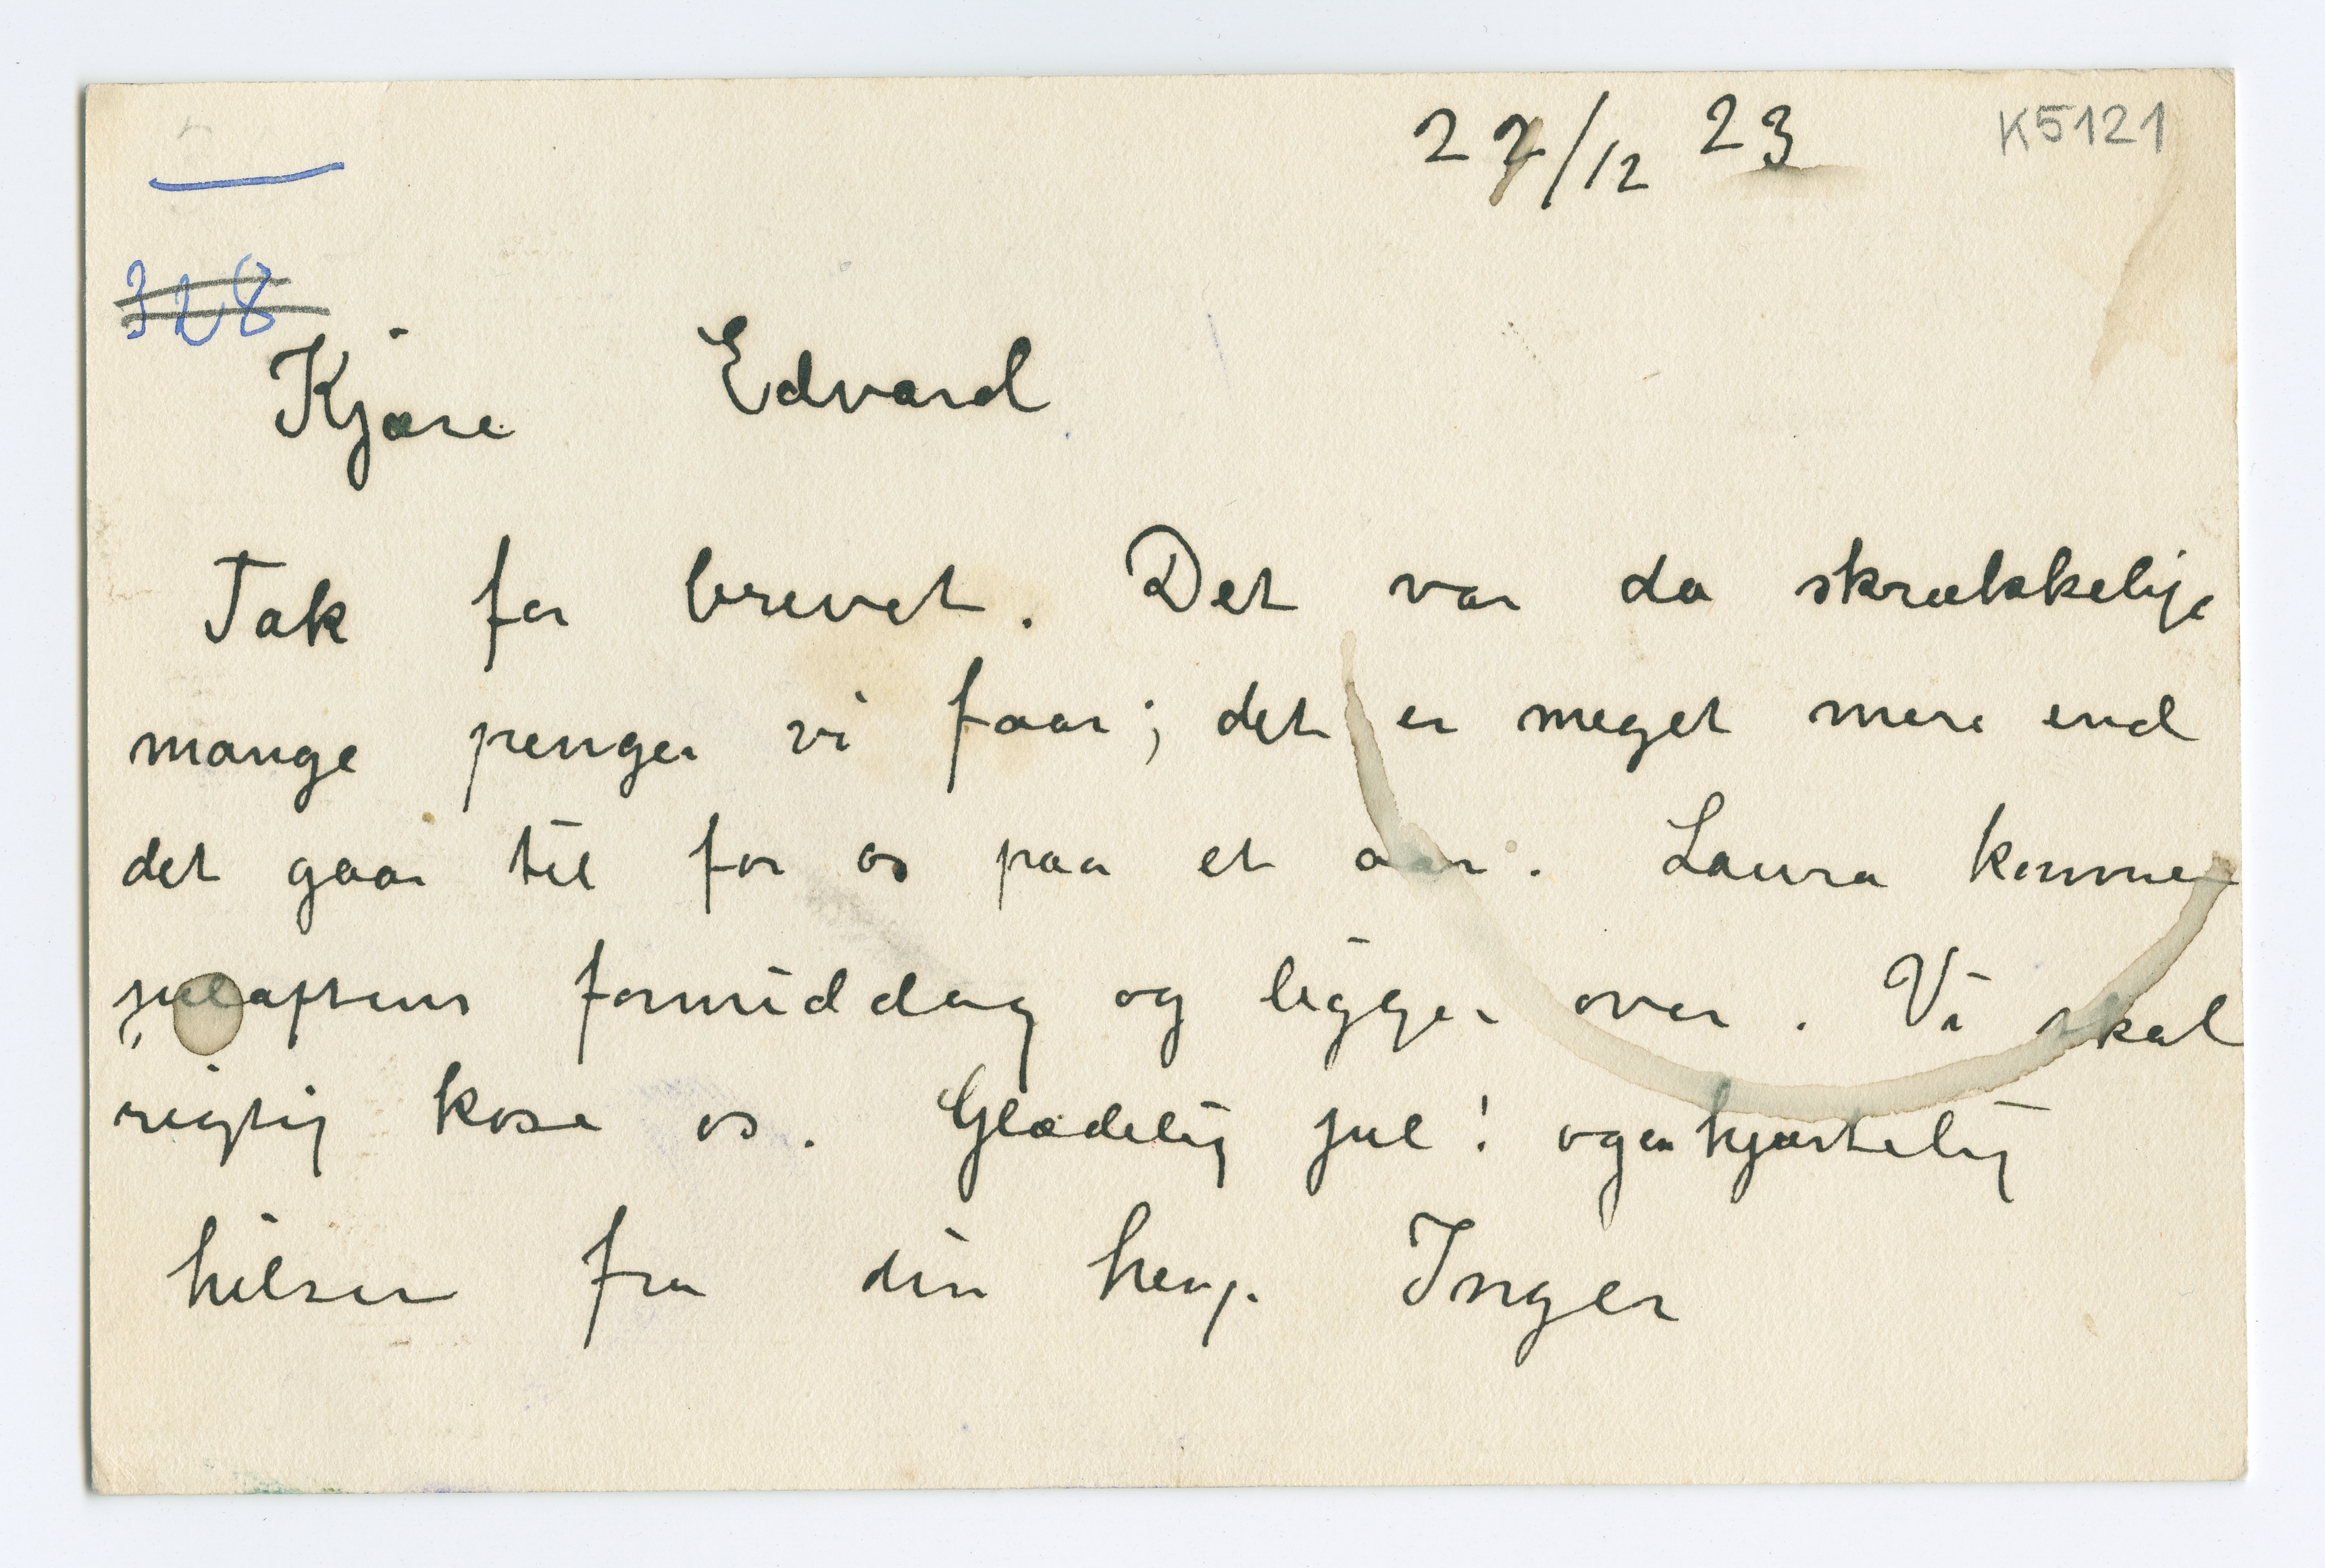 22/12 23
K5121
328
Kjære Edvard
Tak for brevet. Det var da skrækkelige
mange penger vi faar; det er meget mere end
det gaar til for os paa et aar. Laura kommer
juleaftens formiddag og ligger over. Vi skal
rigtig kose os. Glædelig jul! og en hjærtelig
hilsen fra din heng. Inger